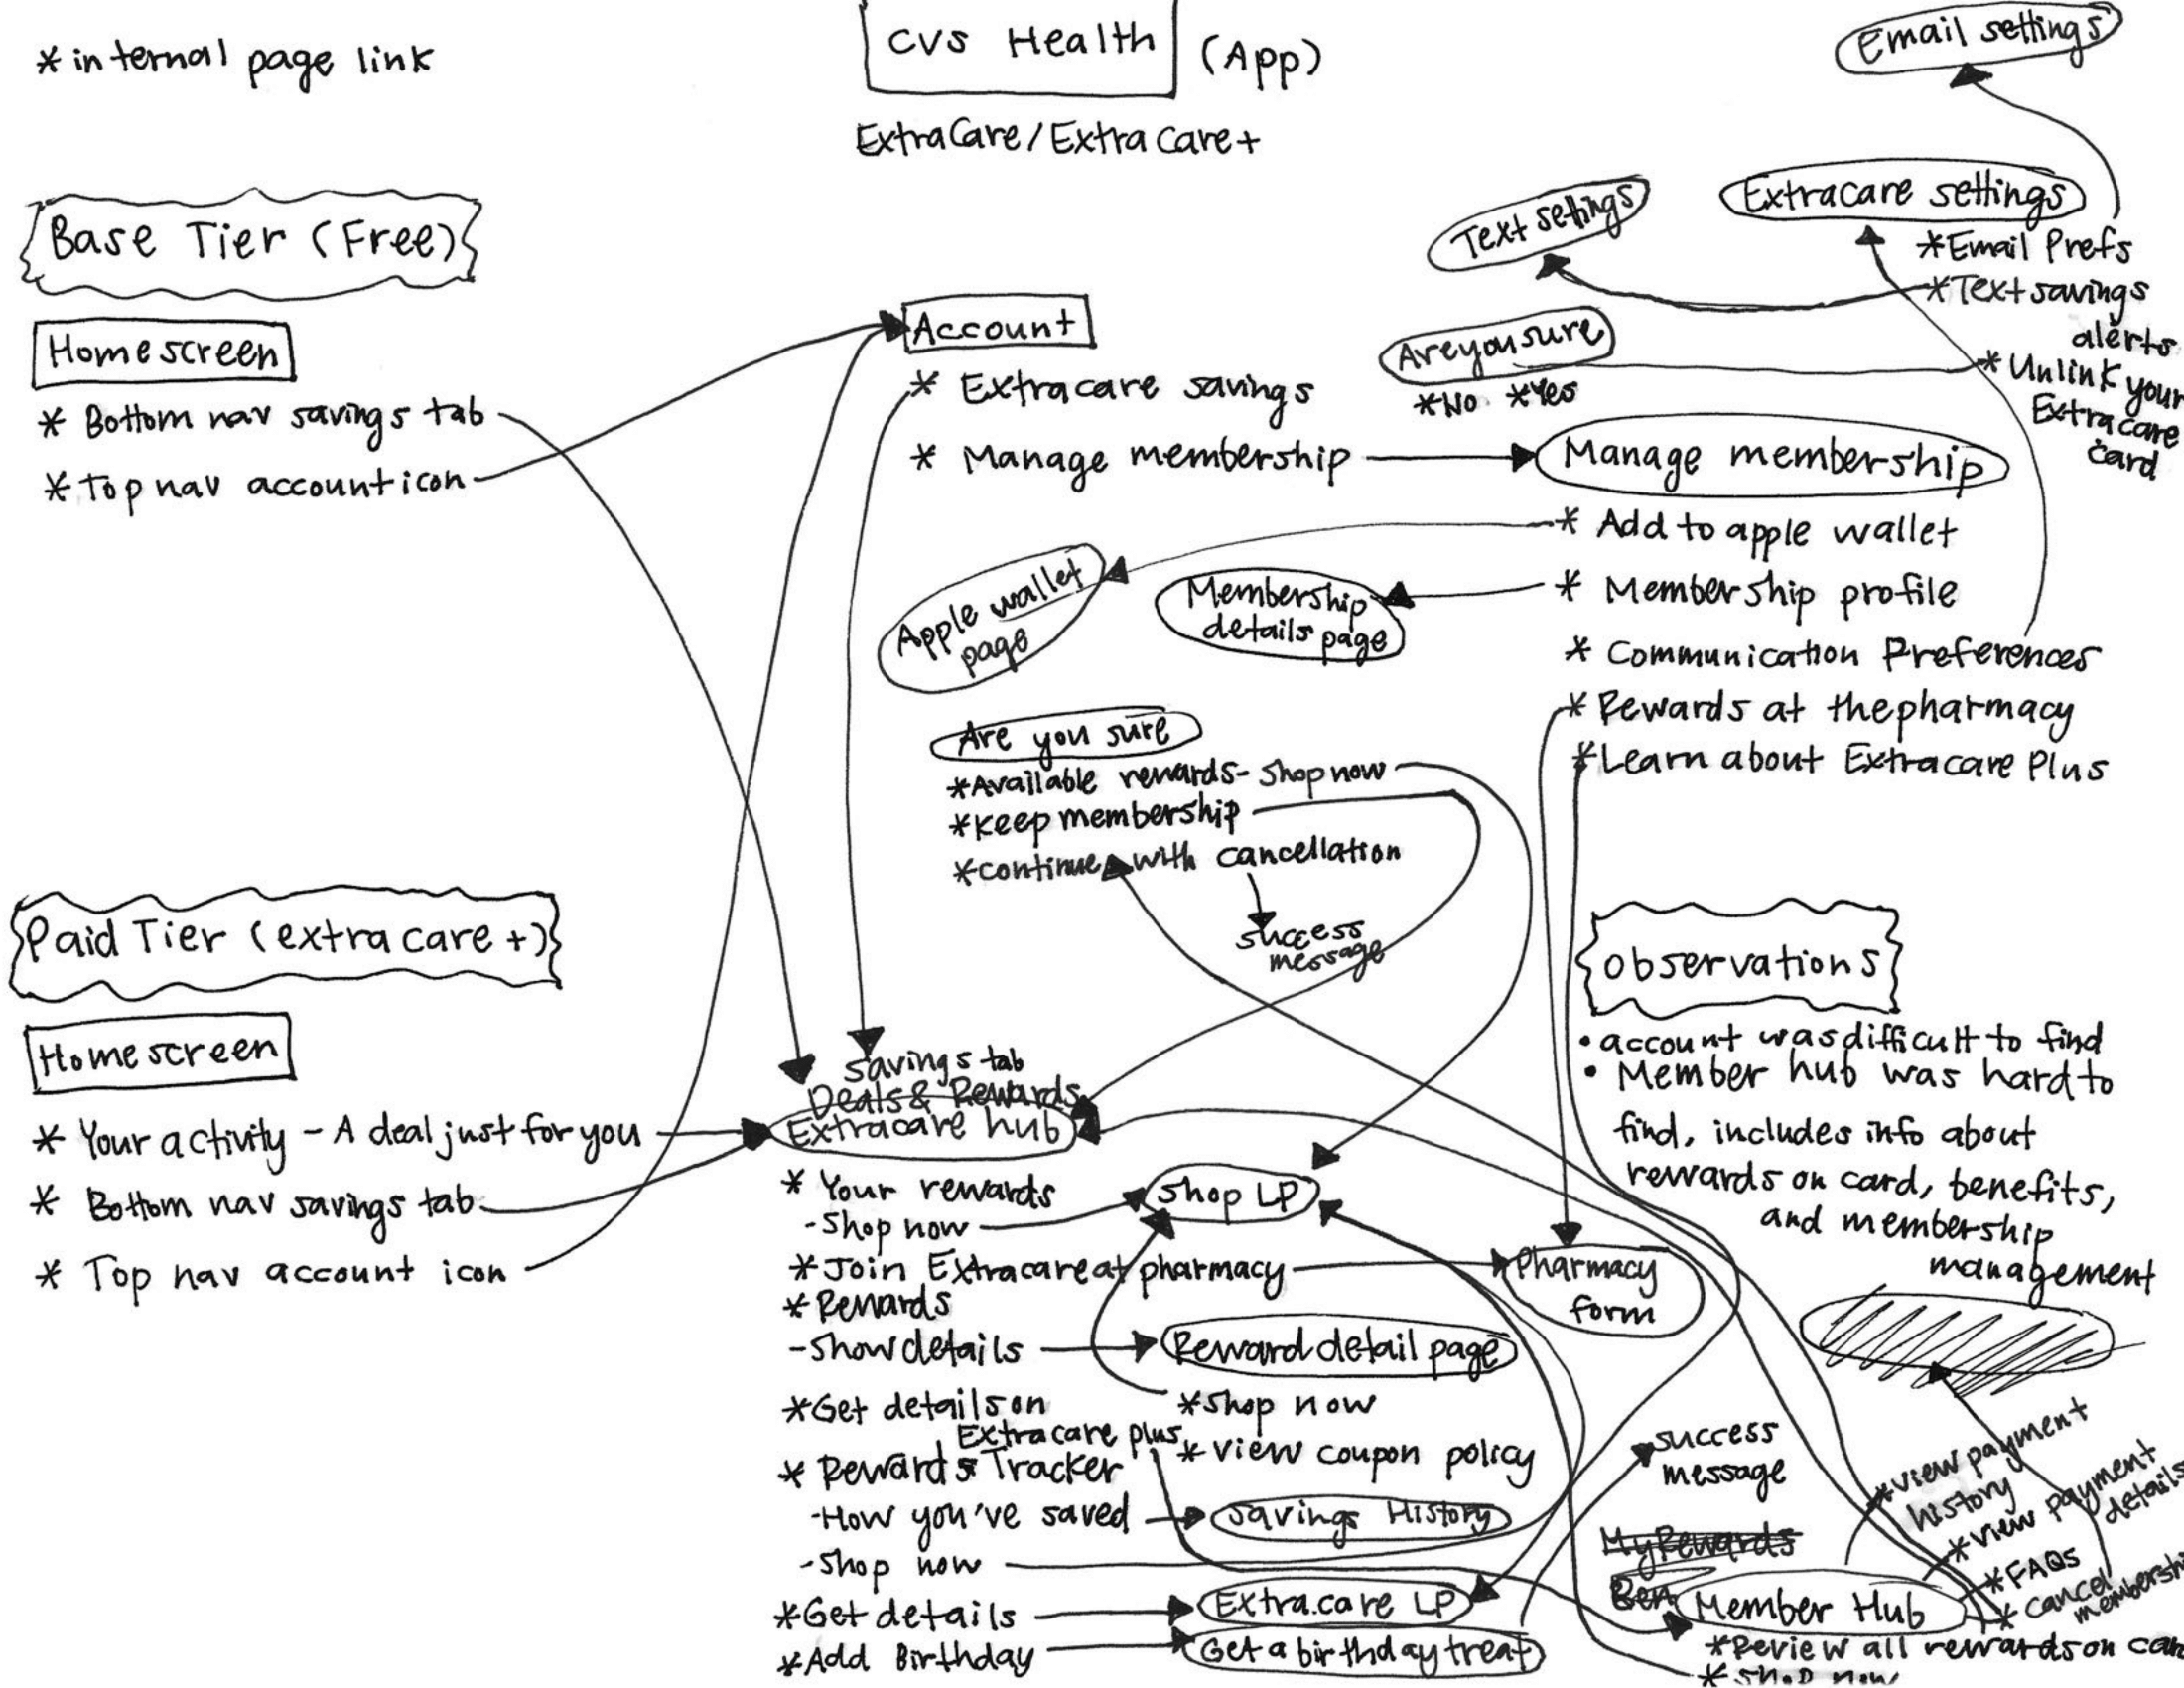 *internal page link
CVS Health (App)
ExtraCare/Extra Care+
Email settings
Extracare settings
*Email Prefs
*Text savings
alerts
*Unlink your
Extracare
card
Text settings
Are you sure
*No *Yes
Base Tier (Free)
Homescreen
* Bottom nav savings tab
*Top nav account icon
Account
* Extracare savings
* Manage membership
Manage membership
* Add to apple wallet
* Membership profile
* Communication Preferences
*Rewards at the pharmacy
*Learn about Extracare Plus
Apple wallet
page
Membership
details page
Are you sure
*Available rewards- shop now
*Keep membership
*continue with cancellation
success
message
Paid Tier (extra care +)
Homescreen
* Your activity - A deal just for you
* Bottom nav savings tab
* Top nav account icon
observations
• account was difficult to find
• Member hub was hard to
find, includes info about
rewards on card, benefits,
and membership
management
savings tab
Deals & Rewards
Extracare hub
* Your rewards
-Shop now
Shop LP
*Join Extracare at pharmacy
Pharmacy
form
*Rewards
-Show details
Reward detail page
*Shop now
*view coupon policy
*Get details on
Extracare plus
* Rewards Tracker
-How you've saved
Savings History
-Shop now
*Get details
Extra.care LP
*Add Birthday
Get a birthday treat
success
message
My Rewards
Ben
Member Hub
*view payment
history
*view payment
details
*FAQs
* cancel
*Review all rewards on
* shop now